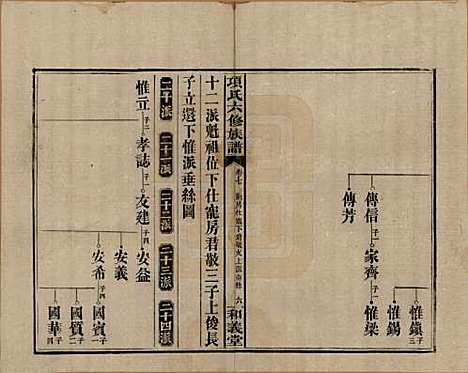 傳信 子一 家齊 子一 惟鎮 子三
惟錫
傳芳
惟梁
項氏六修族譜
卷七
六
和義堂
十二派魁祖位下仕寵房君敬三子上俊長
子立還下惟派垂絲圖
二十派 二十一派 二十二派 二十三派 二十四派
惟立 子二 孝誌 子一 友建 子四 安益
安義
安希 子四 國賓 子一
國質 子二
國華 子四